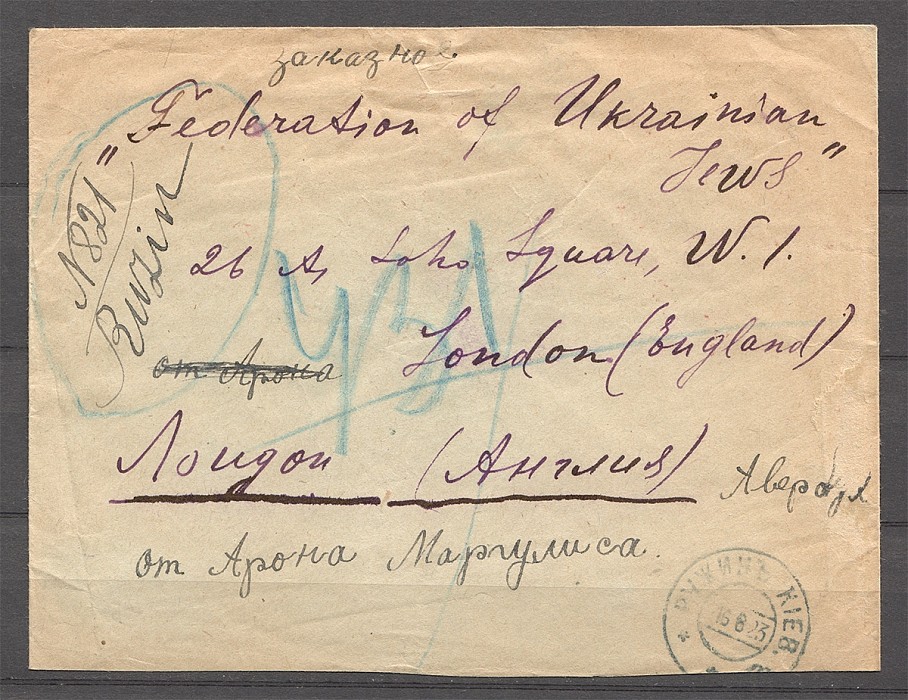 заказное.
"Federation of Ukrainian
Jews"
N 821
Ruzin
26 A, Soho Square, W. 1.
от Арона
London (England)
Лондон (Англия)
от Арона Маргулиса.
РУЖИНЪ КІЕВ.
16 8 23